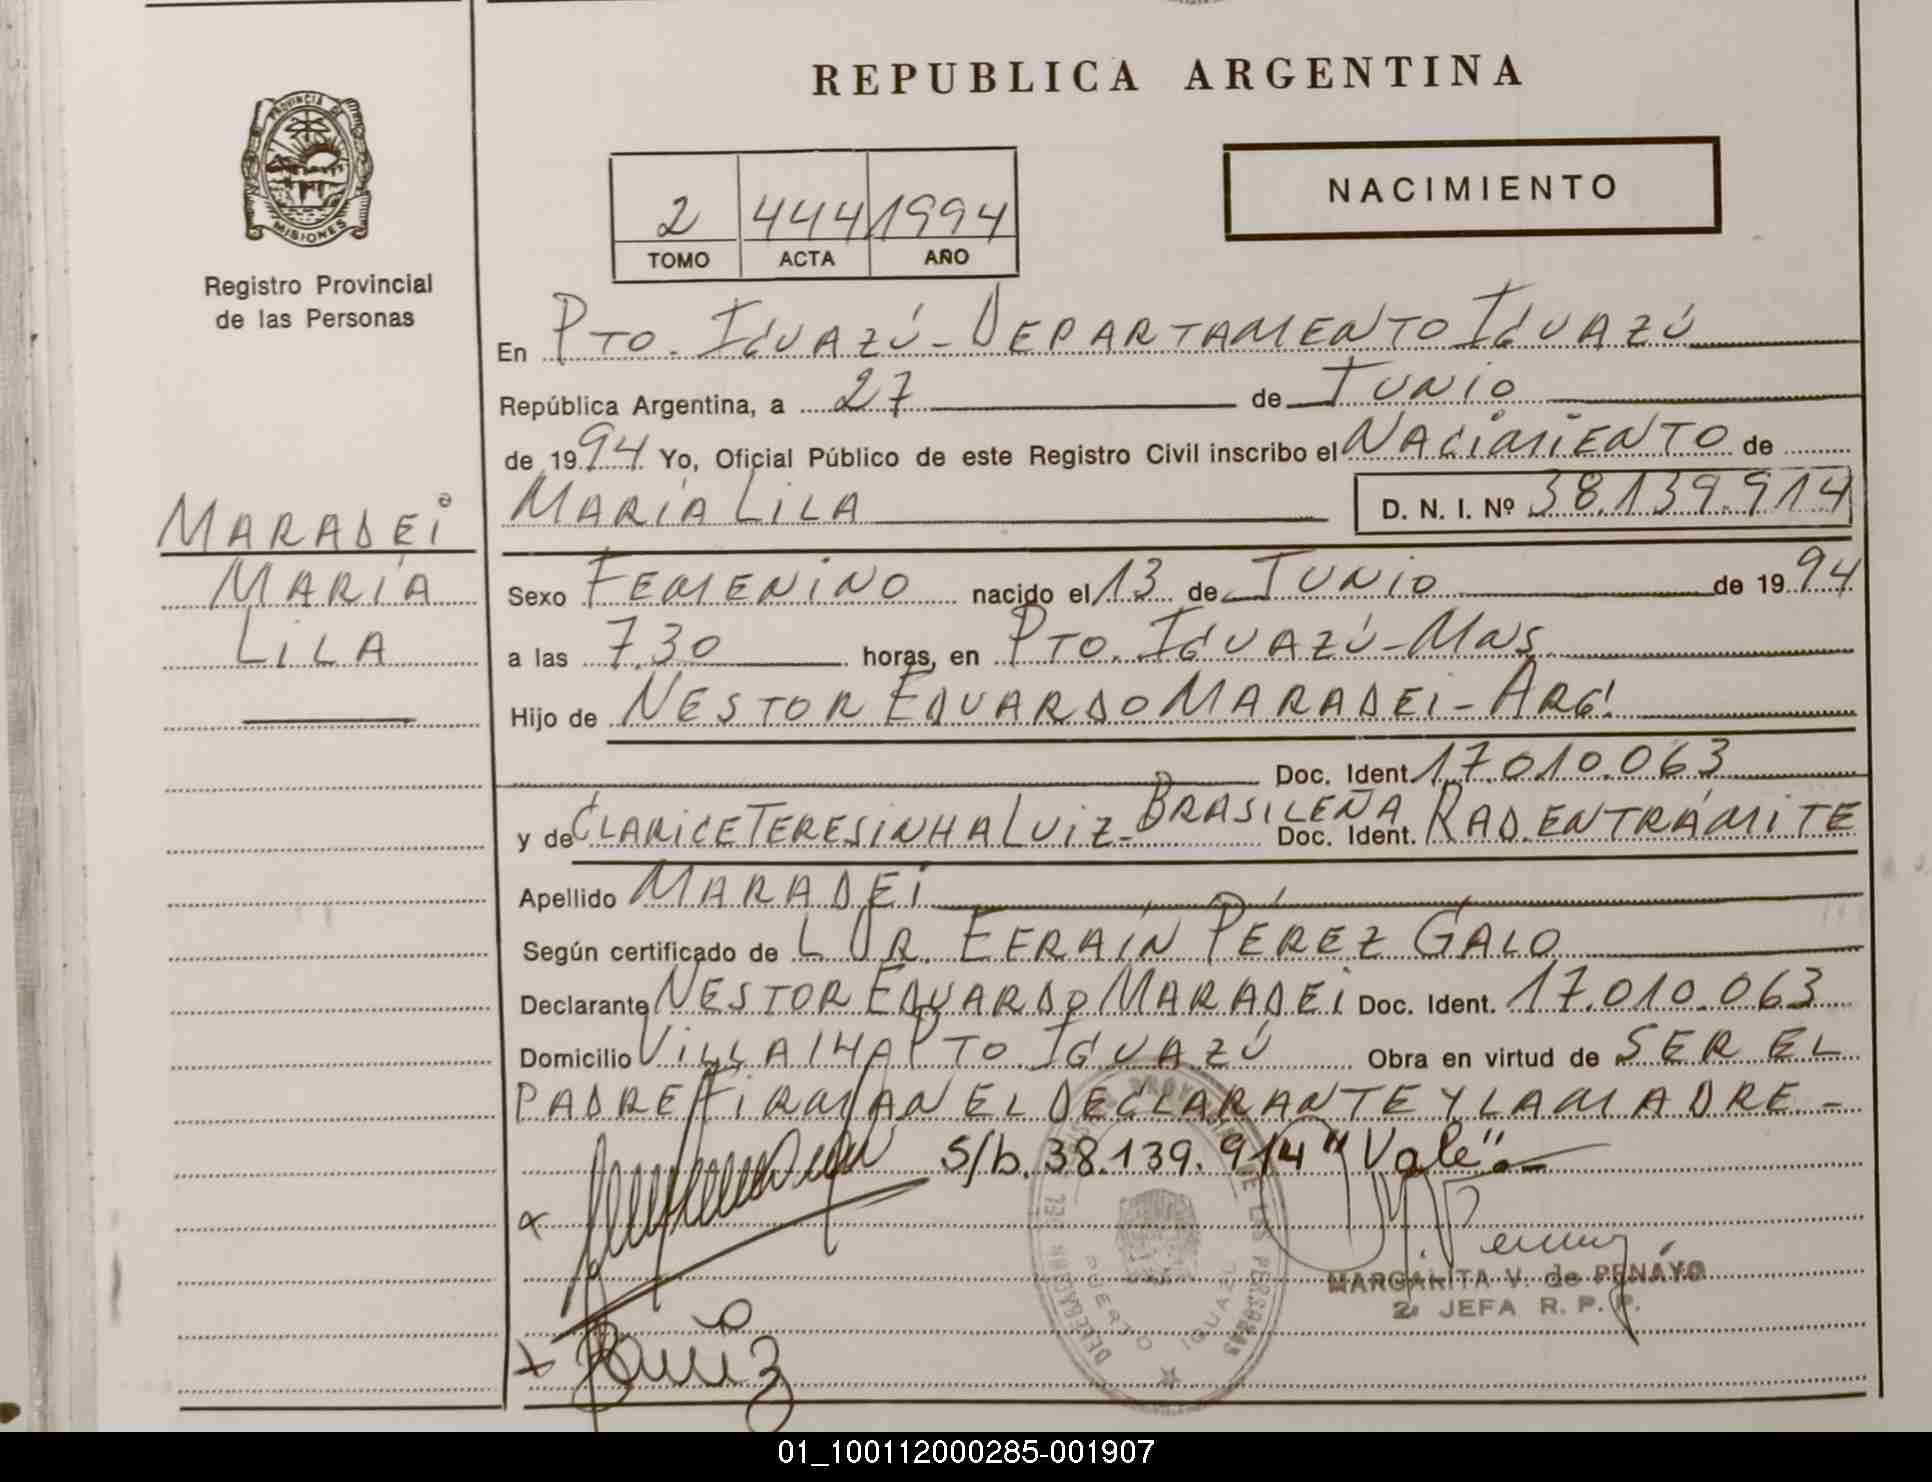 REPUBLICA ARGENTINA
PROVINCIA DE
MISIONES
Registro Provincial
de las Personas
2 444 1994
TOMO ACTA AÑO
NACIMIENTO
En PTO. IGUAZÚ - DEPARTAMENTO IGUAZÚ
República Argentina, a 27 de JUNIO
de 1994 Yo, Oficial Público de este Registro Civil inscribo el NACIMIENTO de
MARÍA LILA D. N. I. Nº 38.139.914
MARADEI
MARÍA
LILA
Sexo FEMENINO nacido el 13 de JUNIO de 1994
a las 7.30 horas, en PTO. IGUAZÚ - MNS.
Hijo de NESTOR EDUARDO MARADEI - ARG.
Doc. Ident. 17.010.063
y de CLARICE TERESINHA LUIZ - BRASILEÑA Doc. Ident. RAD. EN TRÁMITE
Apellido MARADEI
Según certificado de L DR. EFRAÍN PÉREZ GALO
Declarante NESTOR EDUARDO MARADEI Doc. Ident. 17.010.063
Domicilio VILLA 14 PTO IGUAZÚ Obra en virtud de SER EL
PADRE FIRMAN EL DECLARANTE Y LA MADRE -
s/b. 38.139.914 "Vale".-
DELEGACION DEL DE LAS PERSONAS
PUERTO IGUAZU
MARGARITA V. de PENAYO
2ª JEFA R. P. P.
01_100112000285-001907